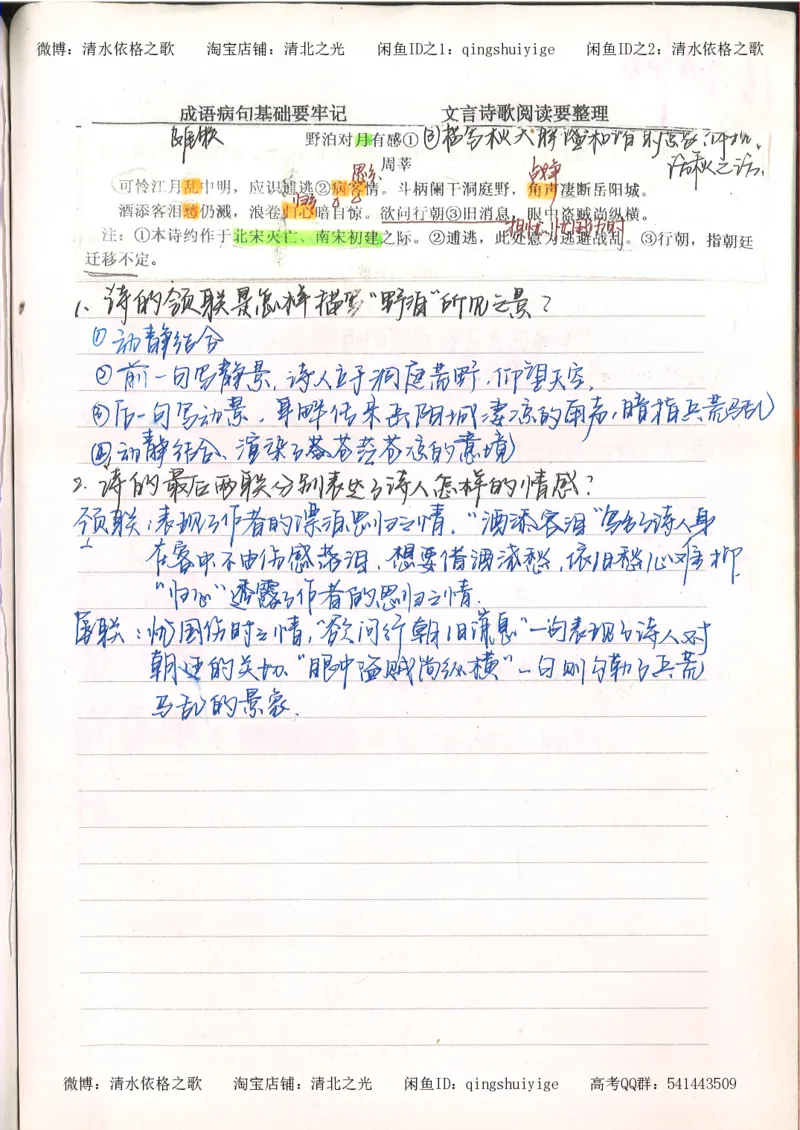 微博：清水依格之歌 淘宝店铺：清北之光 闲鱼ID之1：qingshuiyige 闲鱼ID之2：清水依格之歌
成语病句基础要牢记 文言诗歌阅读要整理
野泊对月有感①
周莘
可怜江月乱中明，应识逋逃②病客情。斗柄阑干洞庭野，角声凄断岳阳城。
酒添客泪愁仍溅，浪卷归心暗自惊。欲问行朝③旧消息，眼中盗贼尚纵横。
注：①本诗约作于北宋灭亡、南宋初建之际。②逋逃，此处意为逃避战乱。③行朝，指朝廷
迁移不定。
1. 诗的颔联是怎样描写“野泊”所见之景？
①动静结合
②前一句写静景，诗人立于洞庭荒野，仰望天空，
③后一句写动景，耳畔传来岳阳城凄凉的角声，暗指兵荒马乱
④动静结合、渲染了苍茫苍凉的意境
2. 诗的最后两联分别表达了诗人怎样的情感？
颈联：表现了作者的漂泊思归之情，“酒添客泪”写出了诗人身
在客中不由伤感落泪，想要借酒浇愁，依旧愁心难抑，
“归心”透露了作者的思归之情．
尾联：忧国伤时之情，“欲问行朝旧消息”一句表现了诗人对
朝廷的关切．“眼中盗贼尚纵横”一句则勾勒了兵荒
马乱的景象．
微博：清水依格之歌 淘宝店铺：清北之光 闲鱼ID：qingshuiyige 高考QQ群：541443509